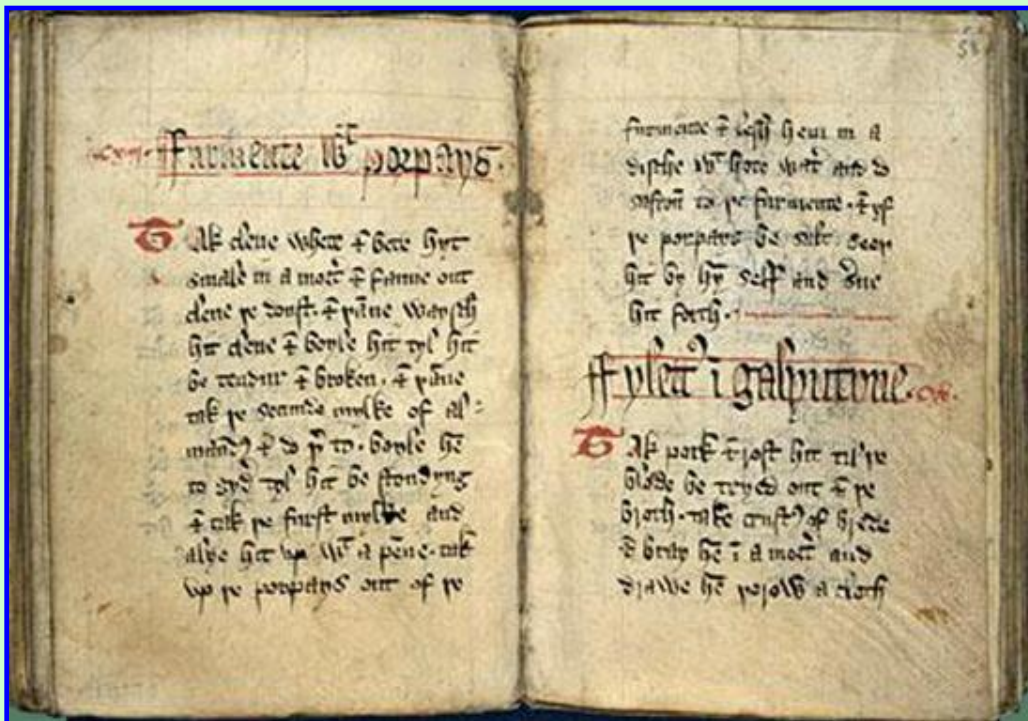 Furmente wt porpays.
Tak clene whete & bete hyt
smale in a mort̉ & fanne out
clene þe doust. & þanne waysch
hit clene & boyle hit tyl hit
be tendur & broken. & þanne
tak þe secunde mylke of al=
maund & do þ to. boyle hē
to gyd tyl hit be stondyng
& tak þe furst mylke and
alye hit up wt a penne. tak
up þe porpays out of þe
58
furmente & lesh hem in a
disshe wt hote wat̉ and do
safron to þe furmente. & yf
þe porpays be salt. seeþ
hit by hym self and sue
hit forth.
ffylett ī galyntyne.
Tak pork & rost hit til þe
blode be tryed out & þe
broth. take crust of brede
& bray hē ī a mort̉ and
drawe hē þorow a cloth